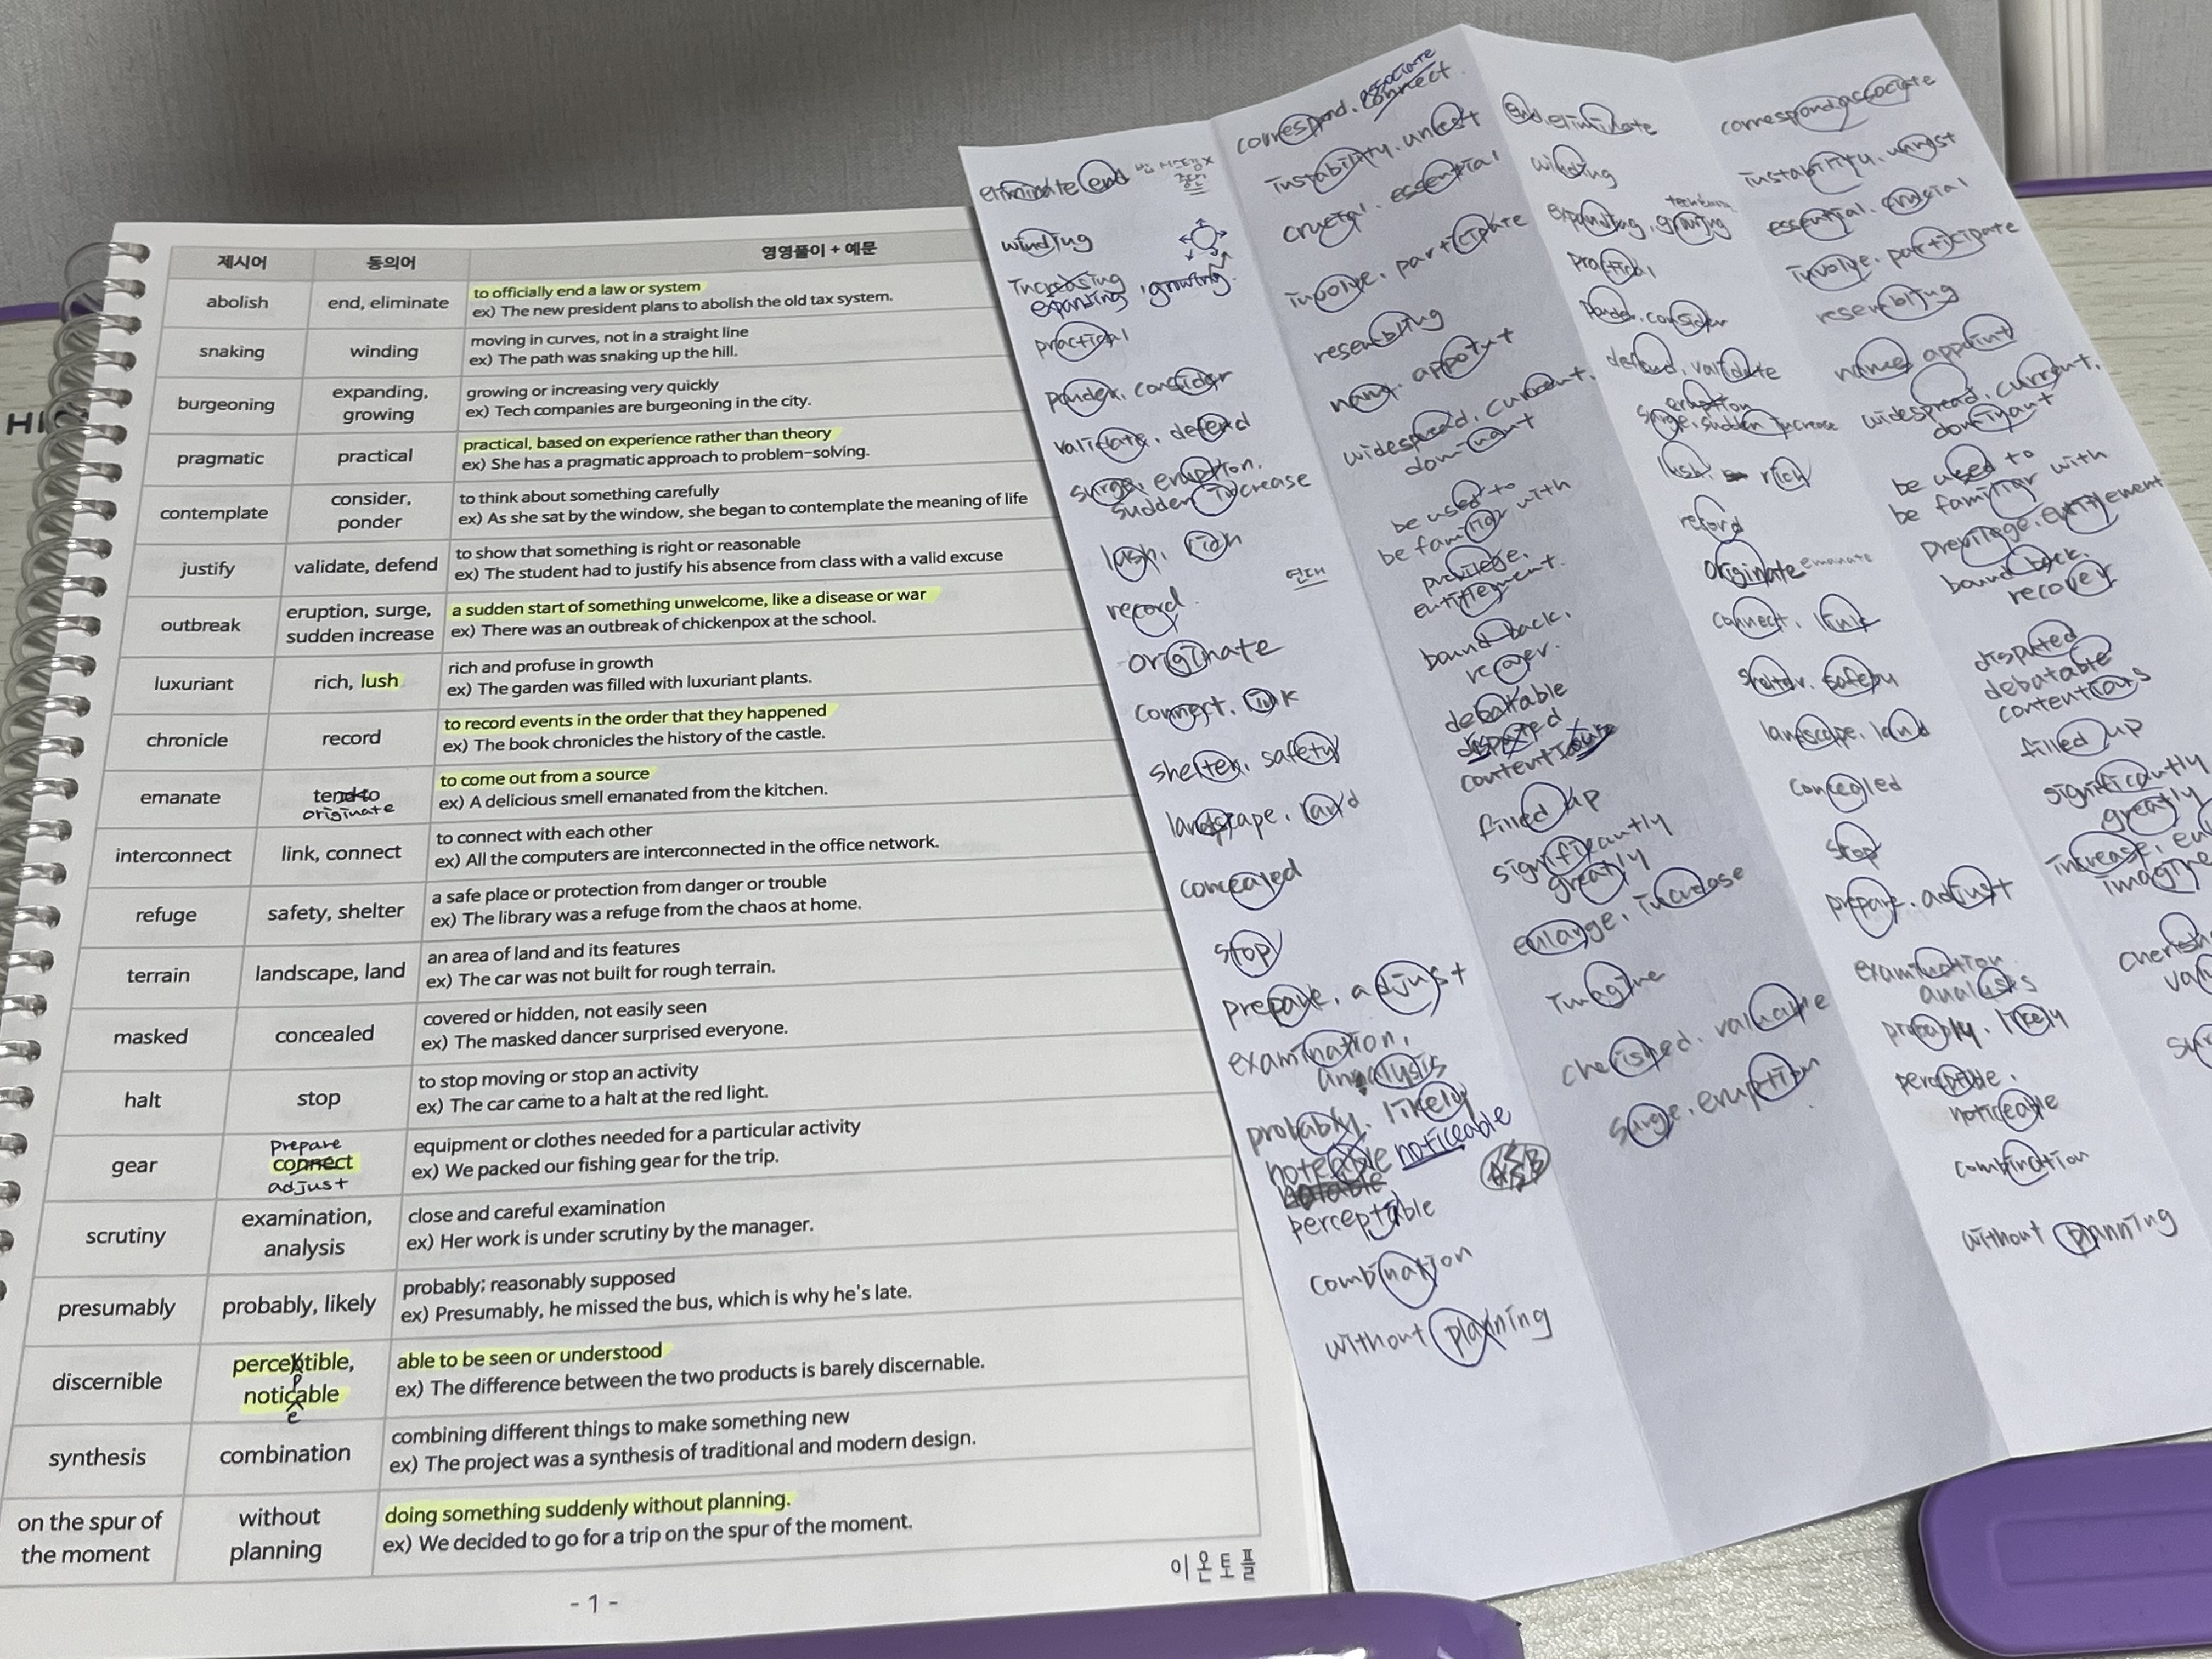 제시어 동의어 영영풀이 + 예문
abolish end, eliminate to officially end a law or system
ex) The new president plans to abolish the old tax system.
snaking winding moving in curves, not in a straight line
ex) The path was snaking up the hill.
burgeoning expanding, growing growing or increasing very quickly
ex) Tech companies are burgeoning in the city.
pragmatic practical practical, based on experience rather than theory
ex) She has a pragmatic approach to problem-solving.
contemplate consider, ponder to think about something carefully
ex) As she sat by the window, she began to contemplate the meaning of life
justify validate, defend to show that something is right or reasonable
ex) The student had to justify his absence from class with a valid excuse
outbreak eruption, surge, sudden increase a sudden start of something unwelcome, like a disease or war
ex) There was an outbreak of chickenpox at the school.
luxuriant rich, lush rich and profuse in growth
ex) The garden was filled with luxuriant plants.
chronicle record to record events in the order that they happened
ex) The book chronicles the history of the castle.
emanate tend to originate to come out from a source
ex) A delicious smell emanated from the kitchen.
interconnect link, connect to connect with each other
ex) All the computers are interconnected in the office network.
refuge safety, shelter a safe place or protection from danger or trouble
ex) The library was a refuge from the chaos at home.
terrain landscape, land an area of land and its features
ex) The car was not built for rough terrain.
masked concealed covered or hidden, not easily seen
ex) The masked dancer surprised everyone.
halt stop to stop moving or stop an activity
ex) The car came to a halt at the red light.
gear prepare connect adjust equipment or clothes needed for a particular activity
ex) We packed our fishing gear for the trip.
scrutiny examination, analysis close and careful examination
ex) Her work is under scrutiny by the manager.
presumably probably, likely probably; reasonably supposed
ex) Presumably, he missed the bus, which is why he's late.
discernible perceptible, noticeable able to be seen or understood
ex) The difference between the two products is barely discernable.
synthesis combination combining different things to make something new
ex) The project was a synthesis of traditional and modern design.
on the spur of the moment without planning doing something suddenly without planning.
ex) We decided to go for a trip on the spur of the moment.
이온토플
- 1 -
eliminate end
중단
winding
Increasing
expanting, growing.
practical
ponder, consider
validate, defend
surge, eruption.
sudden increase
lush, rich
record. 연대
originate
connect. link
shelter, safety
landscape, land
concealed
stop
prepare, adjust
examination,
analysis
probably, likely
noteable noticeable
notable
perceptable
combination
without planning
correspond. associate
connect.
instability. unrest
crucial. essential
involve. participate
resembling
name. appoint
widespread, current.
dominant
be used to
be familiar with
privilege.
entitlement.
bound back.
recover.
debatable
disputed
contentious
filled up
significantly
greatly
enlarge, increase
Imagine
cherished. valuable
surge. eruption
end, eliminate
winding
expanding, growing
practical
ponder. consider
defend, validate
eruption
surge, sudden increase
lush, rich
record
originate emanate
connect. link
shelter. safety
landscape, land
concealed
stop
prepare. adjust
examination
analysis
probably. likely
perceptible.
noticeable
combination
without planning
correspond, associate
instability. unrest
essential. crucial
involve. participate
resembling
name, appoint
widespread, current.
dominant
be used to
be familiar with
previlege. entitlement
bound back.
recover
disputed
debatable
contentious
filled up
significantly
greatly
increase,
imagine